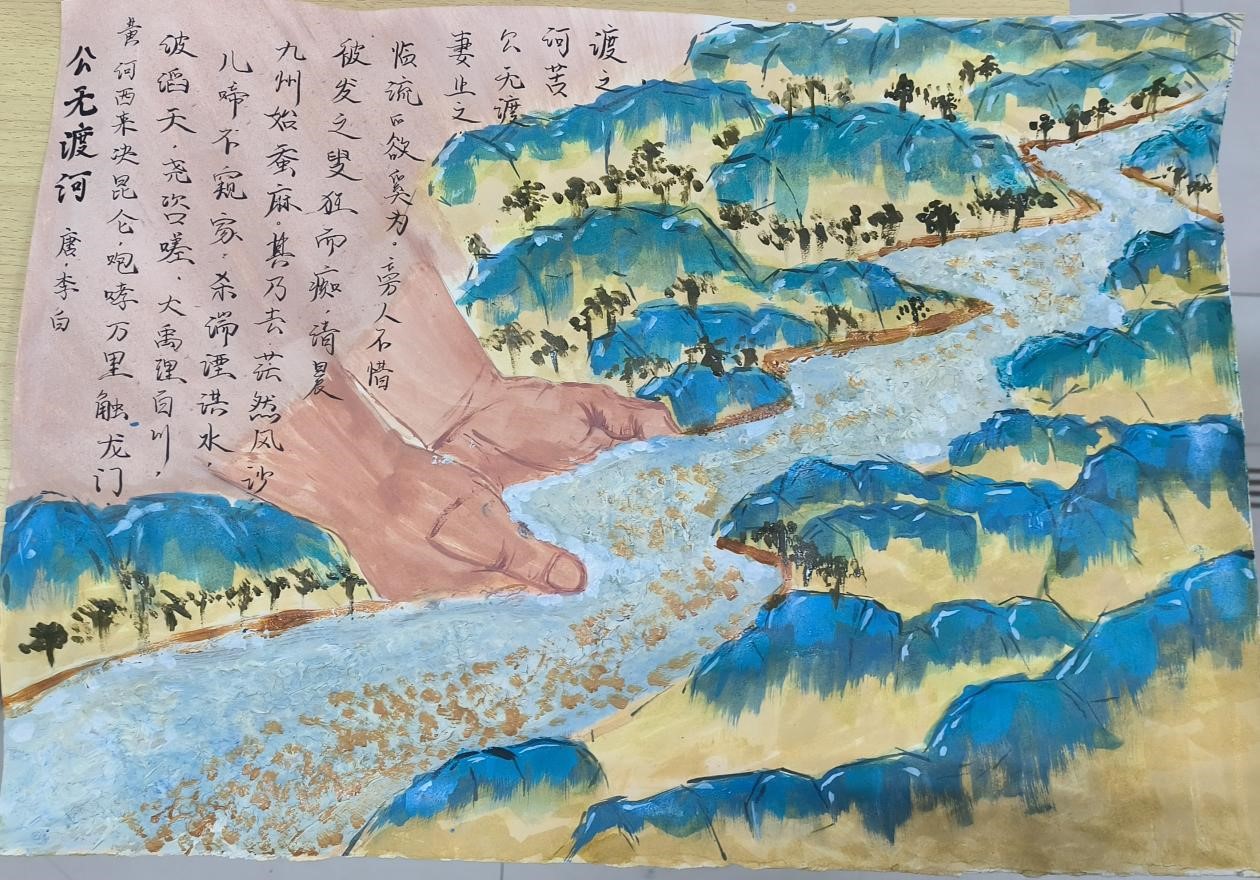 公无渡河 唐 李白
黄河西来决昆仑,咆哮万里触龙门
波滔天,尧咨嗟,大禹理百川,
儿啼不窥家,杀湍湮洪水,
九州始蚕麻。其乃去,茫然风沙
被发之叟狂而痴,清晨
临流欲奚为。旁人不惜
妻止之,
公无渡
河苦
渡之